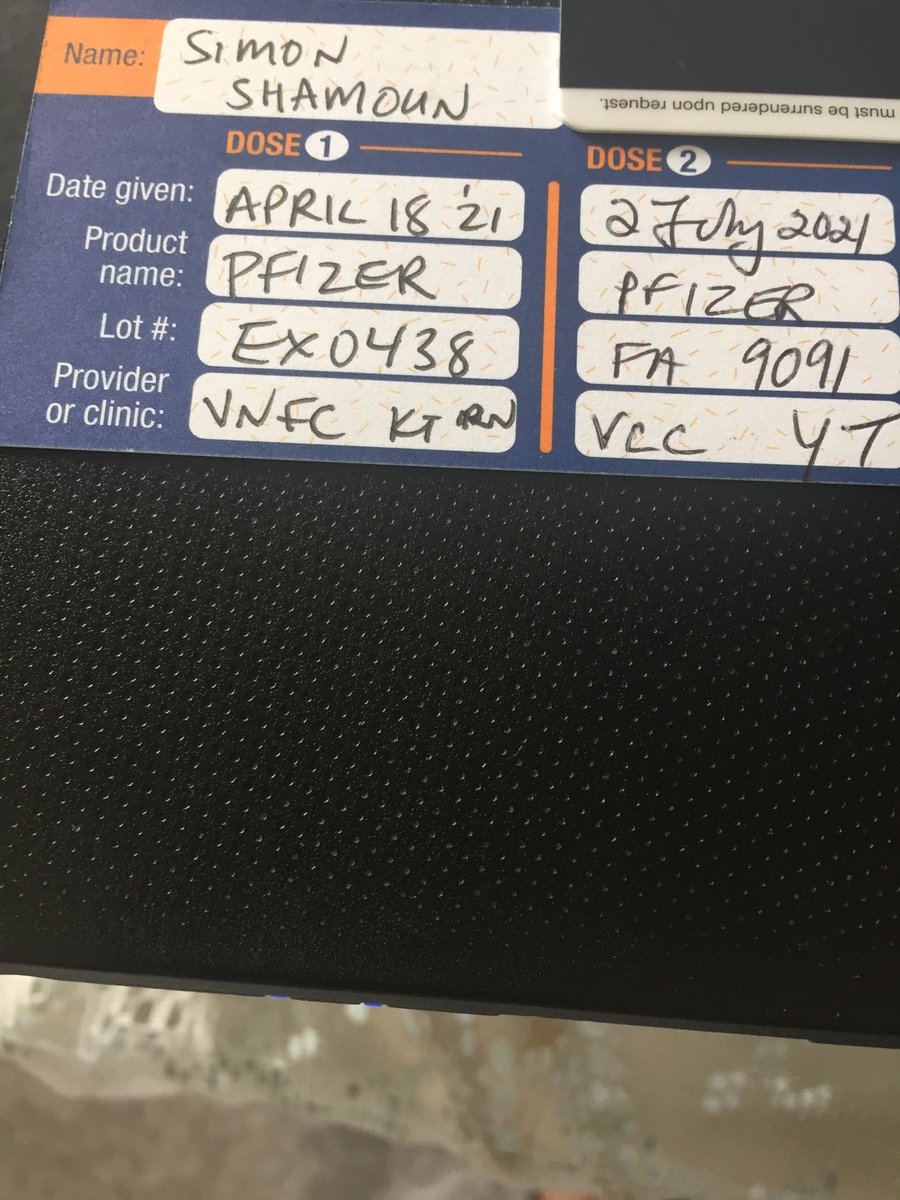 Name: SIMON
SHAMOUN
must be surrendered upon request.
DOSE 1
DOSE 2
Date given: APRIL 18 '21 2 July 2021
Product name: PFIZER PFIZER
Lot #: EX0438 FA 9091
Provider or clinic: VNFC KT RN VCC YT